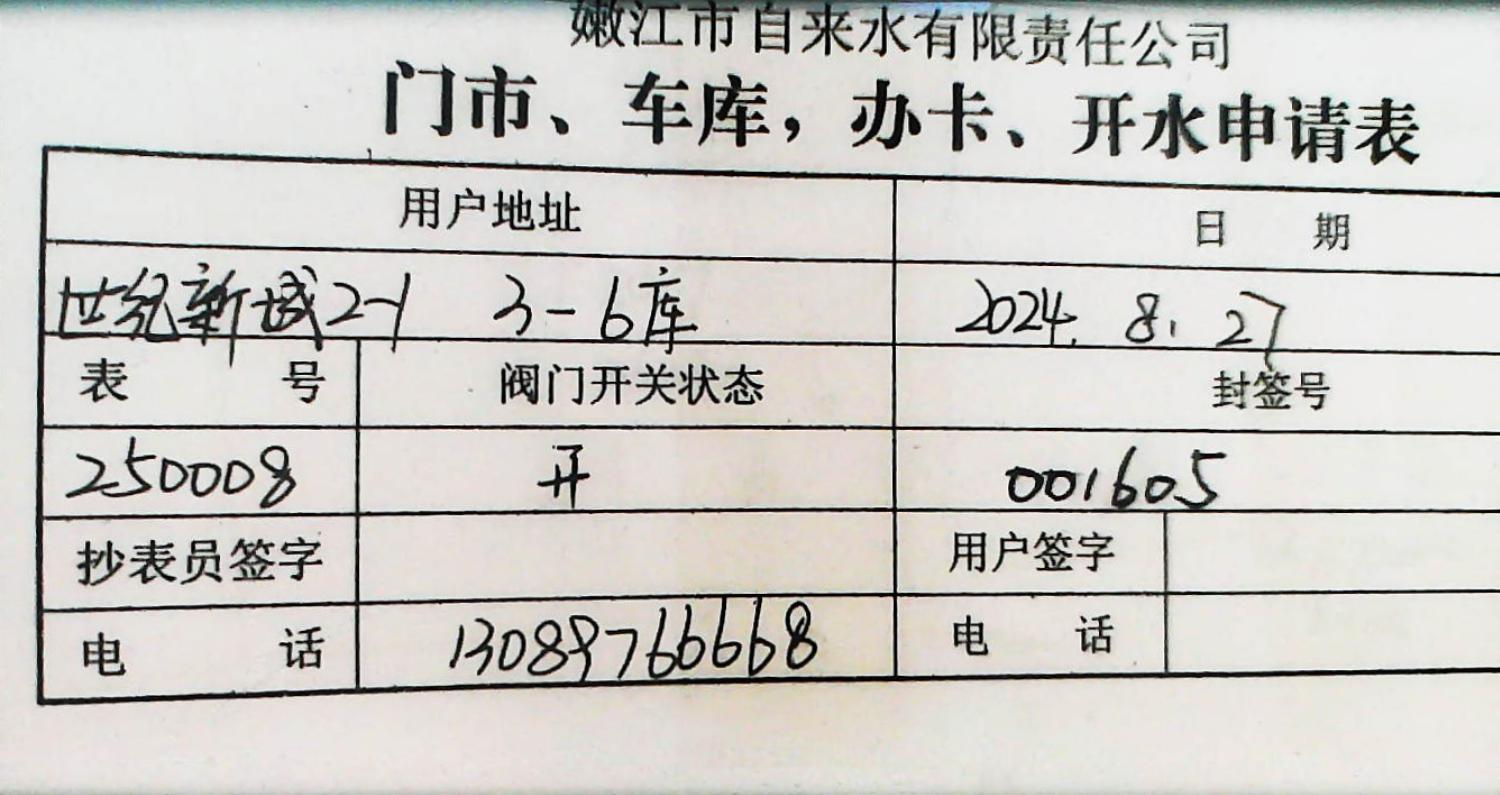 嫩江市自来水有限责任公司
门市、车库，办卡、开水申请表
用户地址 日 期
世纪新城2-1 3-6库 2024.8.27
表 号 阀门开关状态 封签号
250008 开 001605
抄表员签字 用户签字
电 话 13089766668 电 话